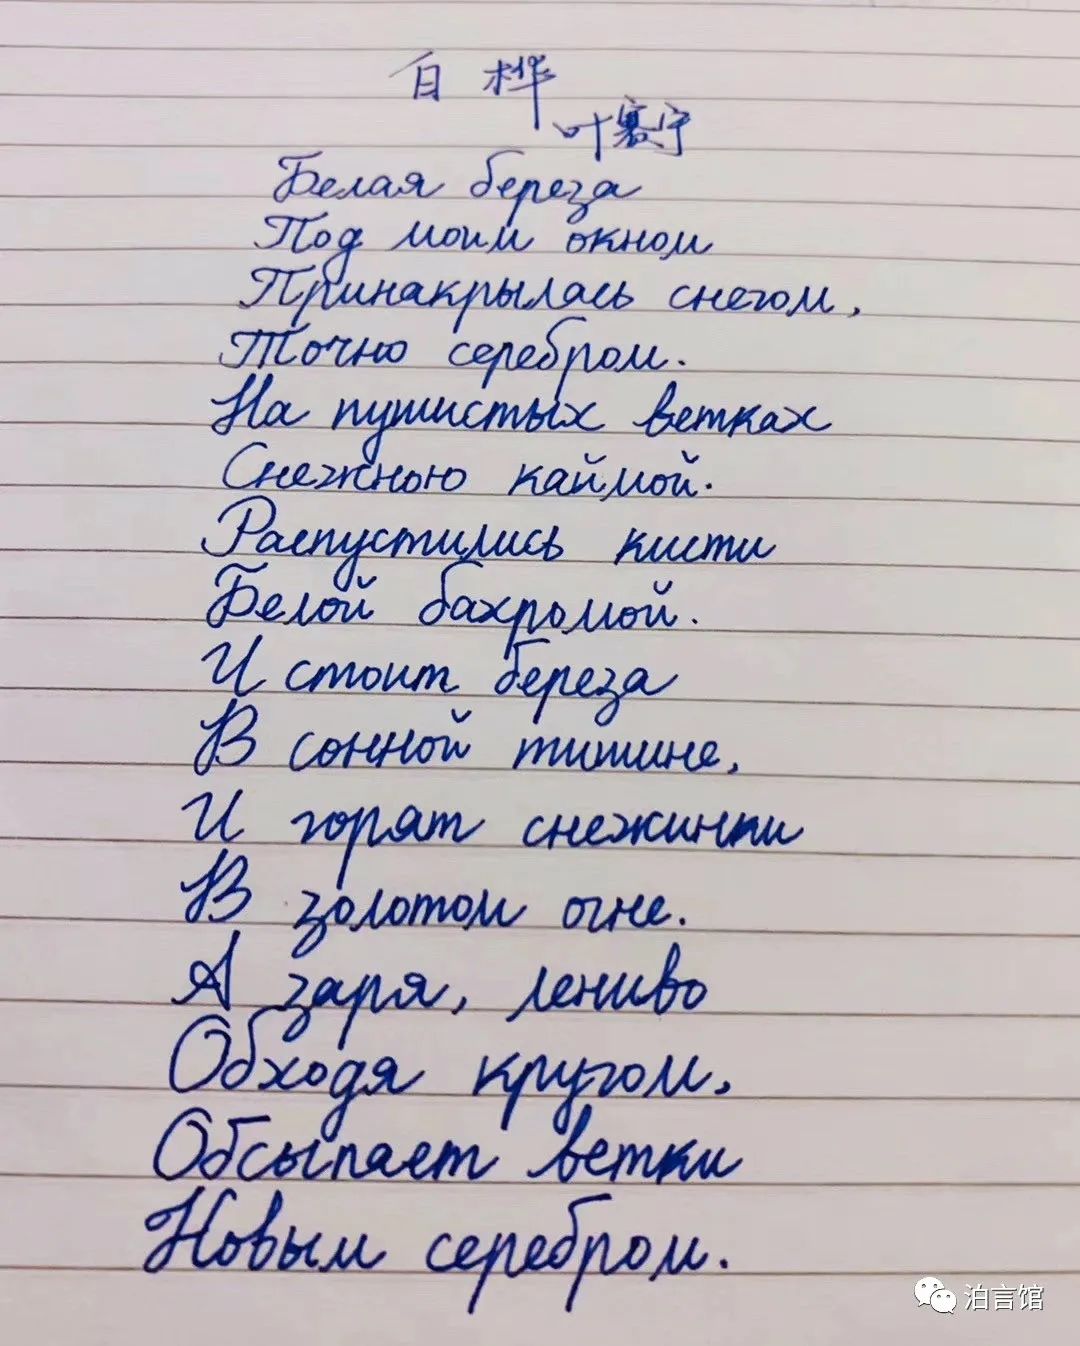 白桦
叶赛宁
Белая береза
Под моим окном
Принакрылась снегом,
Точно серебром.
На пушистых ветках
Снежною каймой.
Распустились кисти
Белой бахромой.
И стоит береза
В сонной тишине,
И горят снежинки
В золотом огне.
А заря, лениво
Обходя кругом,
Обсыпает ветки
Новым серебром.
泊言馆